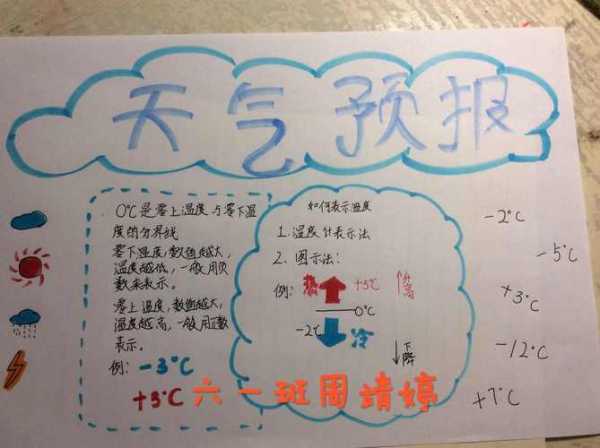 天气预报
0℃是零上温度与零下温
度的分界线
零下温度,数值越大,
温度越低,一般用负
数来表示。
零上温度,数值越大,
温度越高,一般用正数
表示。
例: -3℃
+3℃
如何表示温度
1.温度计表示法
2.图示法:
例: 热 +3℃ 升高
0℃
-2℃ 冷 下降
-2℃
-5℃
+3℃
-12℃
+7℃
六一班周靖婷